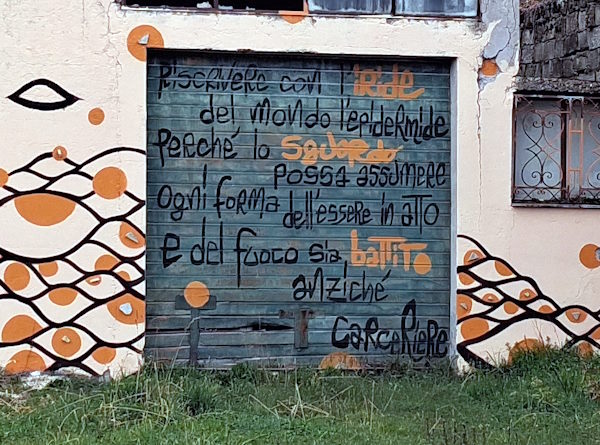 RISCRIVERE CON L'IRIDE
DEL MONDO L'EPIDERMIDE
PERCHÉ LO SGUARDO
POSSA ASSUMERE
OGNI FORMA DELL'ESSERE IN ATTO
E DEL FUOCO SIA BATTITO
ANZICHÉ
CARCERIERE